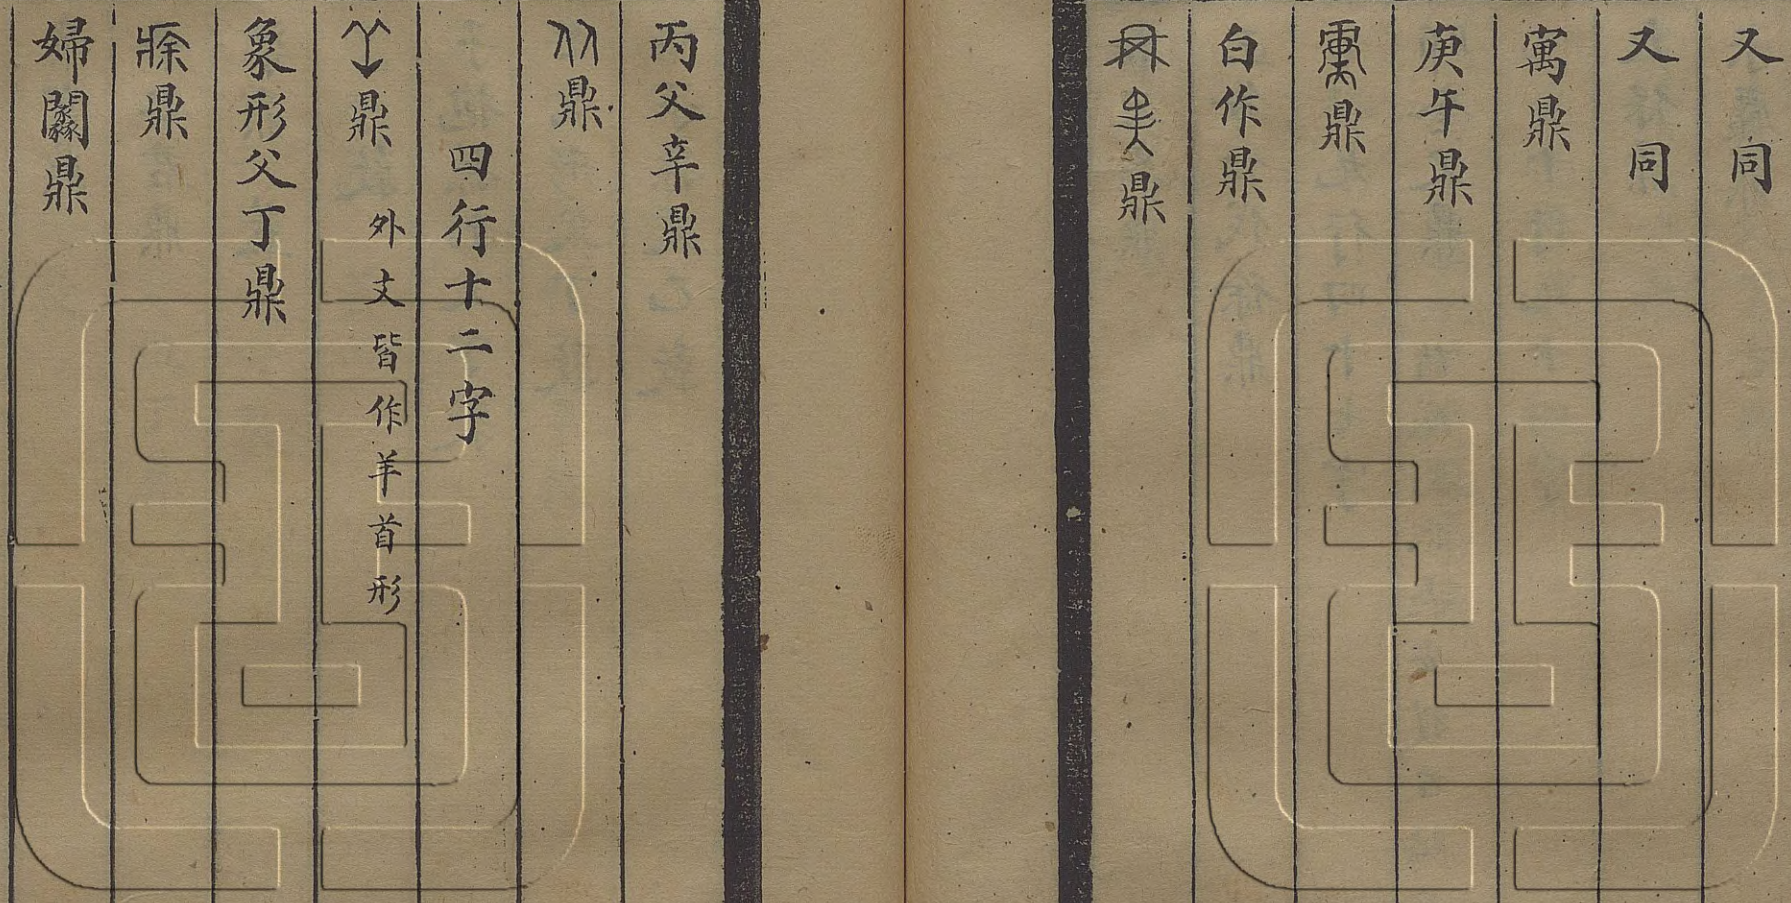 又 同
又 同
寓鼎
庚午鼎
鼎
白作鼎
鼎
丙父辛鼎
鼎
四行十二字
鼎 外文皆作羊首形
象形父丁鼎
鼎
婦闗鼎